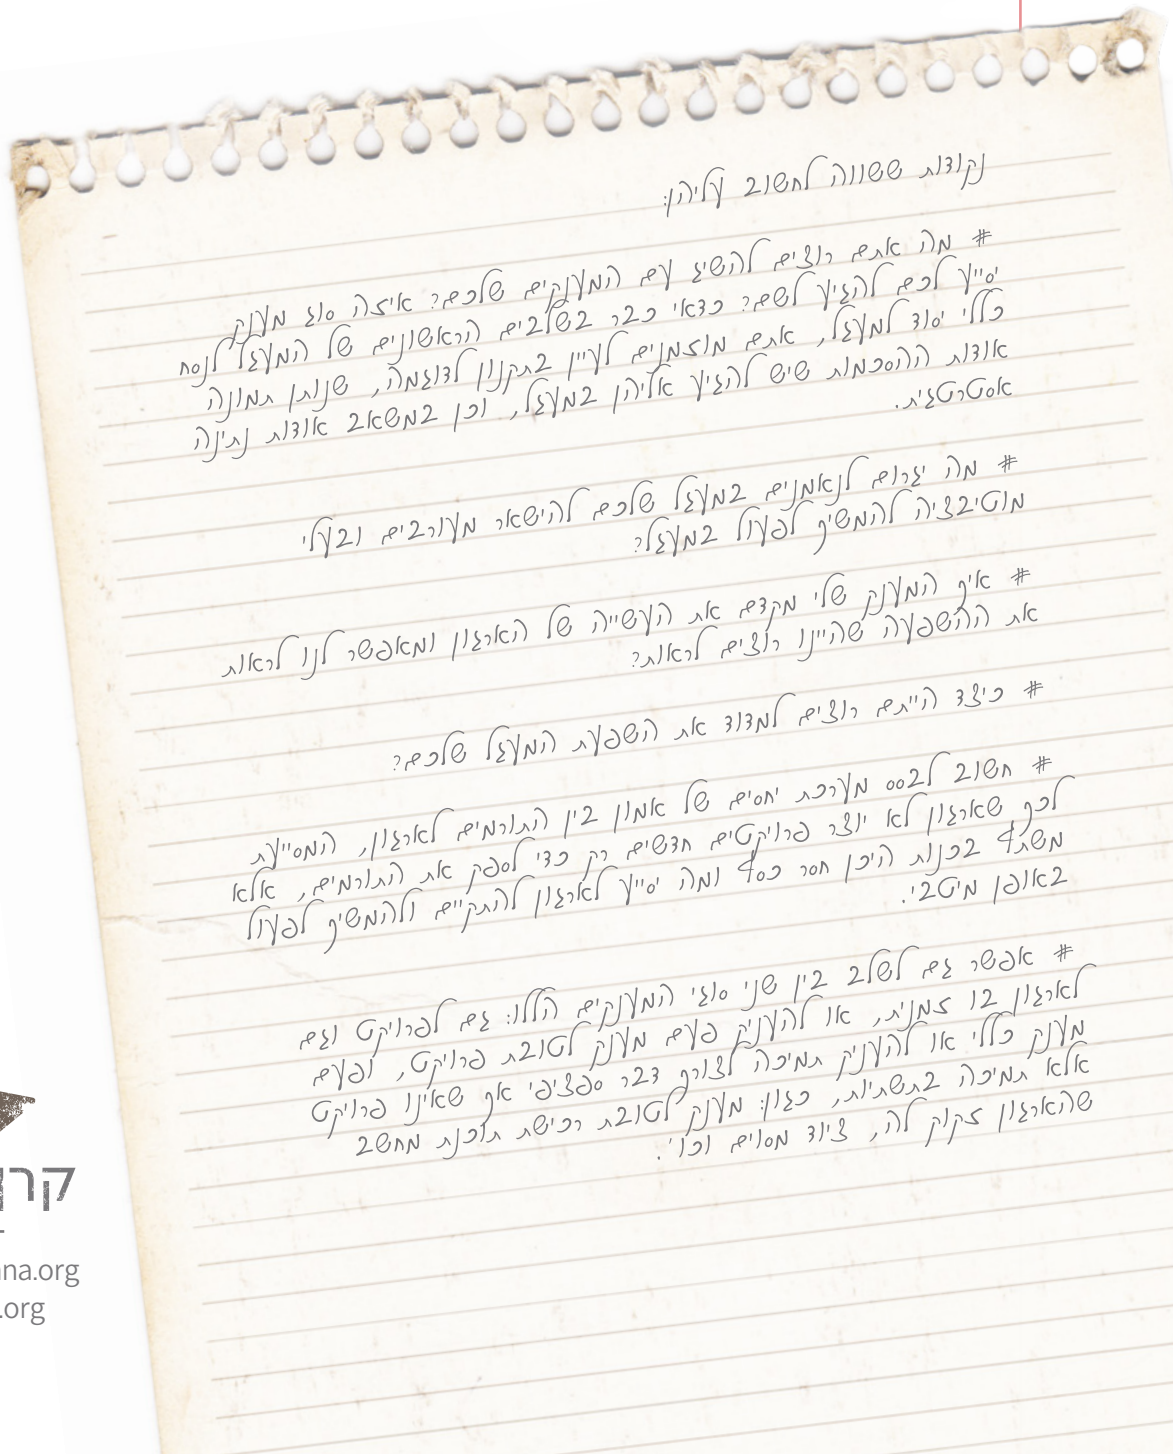 נקודות ששווה לחשוב עליהן:
# מה אתם רוצים להשיג עם המענקים שלכם? איזה סוג מענק
יסייע לכם להגיע לשם? כדאי כבר בשלבים הראשונים של המעגל לנסח
כללי יסוד למעגל, אתם מוזמנים לעיין בתקנון לדוגמה, שנותן תמונה
אודות ההסכמות שיש להגיע אליהן במעגל, וכן במשאב אודות נתינה
אסטרטגית.
# מה יגרום לנאמנים במעגל שלכם להישאר מעורבים ובעלי
מוטיבציה להמשיך לפעול במעגל?
# איך המענק שלי מקדם את העשייה של הארגון ומאפשר לנו לראות
את ההשפעה שהיינו רוצים לראות?
# כיצד הייתם רוצים למדוד את השפעת המעגל שלכם?
# חשוב לבסס מערכת יחסים של אמון בין התורמים לארגון, המסייעת
לכך שארגון לא יוצר פרויקטים חדשים רק כדי לספק את התורמים, אלא
משתף בכנות היכן חסר כסף ומה יסייע לארגון להתקיים ולהמשיך לפעול
באופן מיטבי.
# אפשר גם לשלב בין שני סוגי המענקים הללו: גם לפרויקט וגם
לארגון בו זמנית, או להעניק פעם מענק לטובת פרויקט, ופעם
מענק כללי או להעניק תמיכה לצורך דבר ספציפי אך שאינו פרויקט
אלא תמיכה בתשתיות, כגון: מענק לטובת רכישת תוכנת מחשב
שהארגון זקוק לה, ציוד מסוים וכו'.
na.org
.org